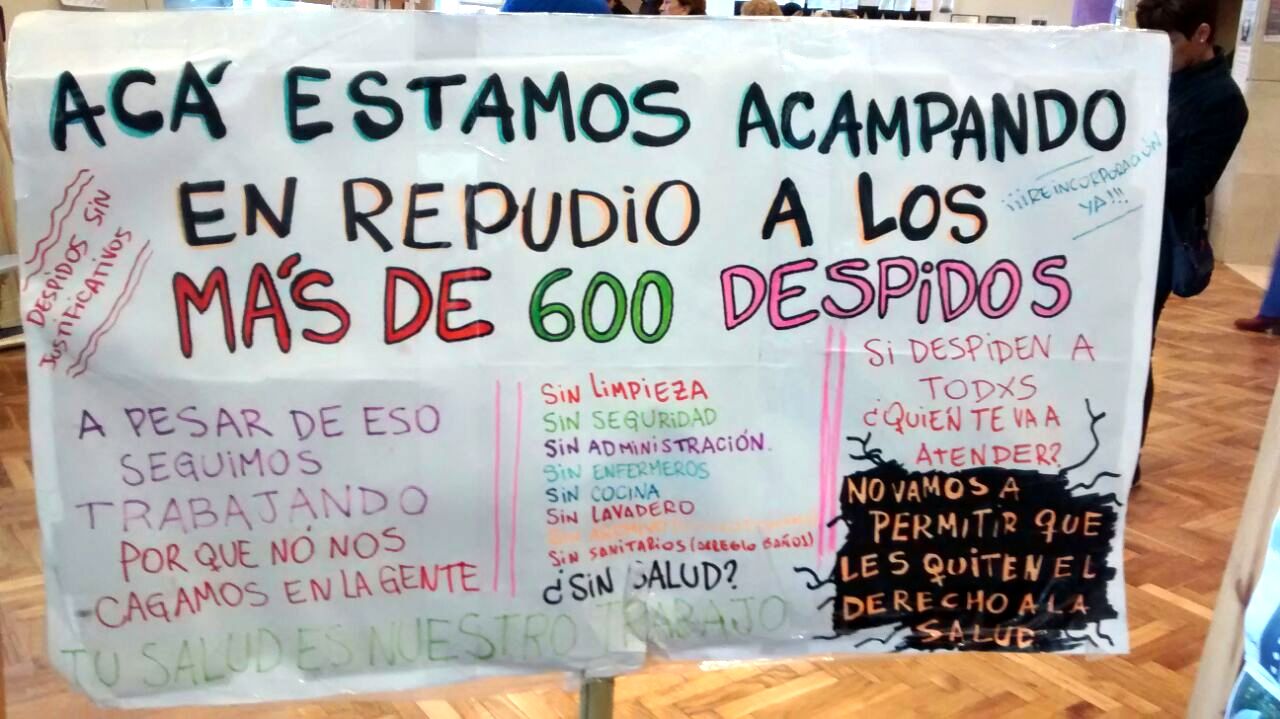 ACÁ ESTAMOS ACAMPANDO
EN REPUDIO A LOS
MÁS DE 600 DESPIDOS
DESPIDOS SIN
JUSTIFICATIVOS
¡¡¡REINCORPORACIÓN
YA!!!
A PESAR DE ESO
SEGUIMOS
TRABAJANDO
POR QUE NÓ NOS
CAGAMOS EN LA GENTE
SIN LIMPIEZA
SIN SEGURIDAD
SIN ADMINISTRACIÓN.
SIN ENFERMEROS
SIN COCINA
SIN LAVADERO
SIN
SIN SANITARIOS (ARREGLO BAÑOS)
¿SIN SALUD?
SI DESPIDEN A
TODXS
¿QUIÉN TE VA A
ATENDER?
NO VAMOS A
PERMITIR QUE
LES QUITEN EL
DERECHO A LA
SALUD
TU SALUD ES NUESTRO TRABAJO